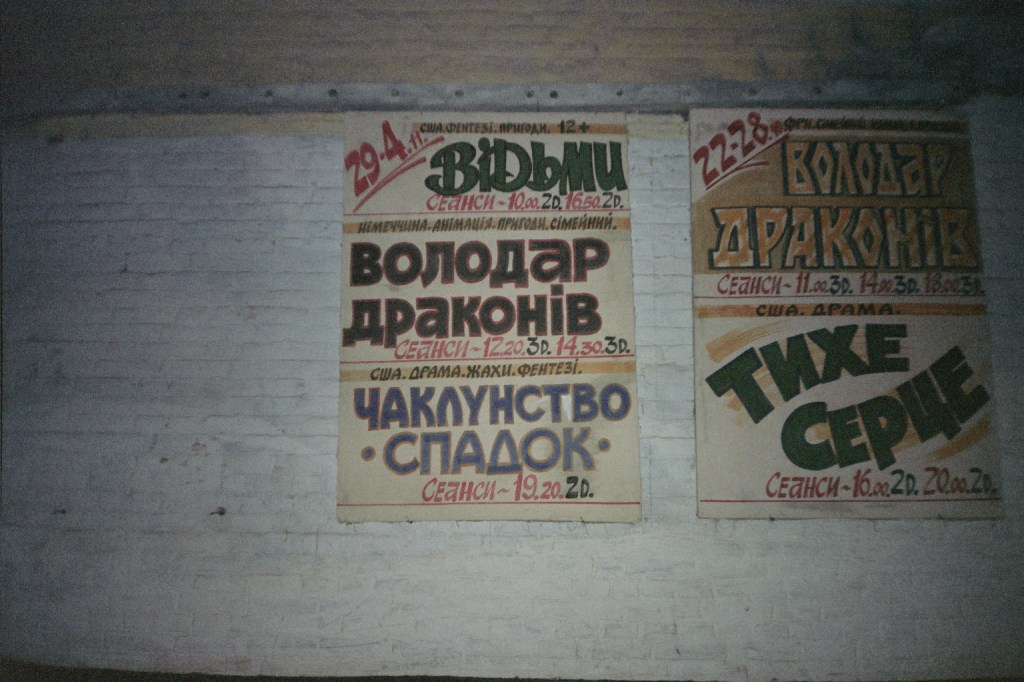 29-4.11.
США.ФЕНТЕЗІ.ПРИГОДИ. 12+
ВІДЬМИ
СЕАНСИ~10.00.2D.16.50.2D.
НІМЕЧЧИНА.АНІМАЦІЯ.ПРИГОДИ.СІМЕЙНИЙ.
ВОЛОДАР
ДРАКОНІВ
СЕАНСИ~12.20.3D.14.30.3D.
США.ДРАМА.ЖАХИ.ФЕНТЕЗІ.
ЧАКЛУНСТВО
•СПАДОК•
СЕАНСИ~19.20.2D.
22-28.
ФРН.СІМЕЙНИЙ
ВОЛОДАР
ДРАКОНІВ
СЕАНСИ~11.00.3D.14.00.3D.18.00.3D.
США. ДРАМА.
ТИХЕ
СЕРЦЕ
СЕАНСИ~16.00.2D.20.00.2D.